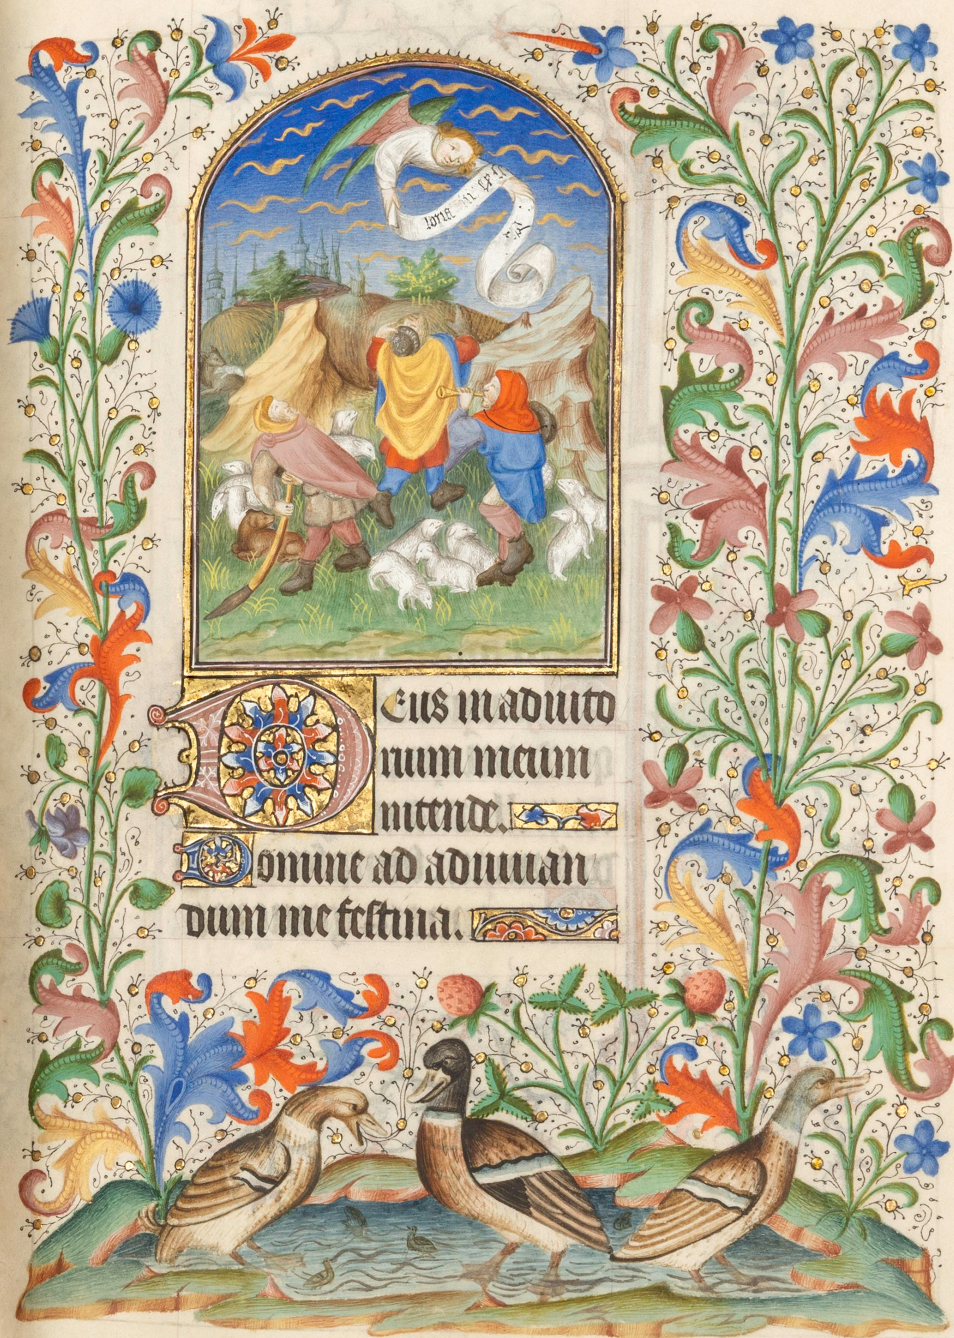 loria
Deus in adiuto
rium meum
intende.
Domine ad adiuuan
dum me festina.